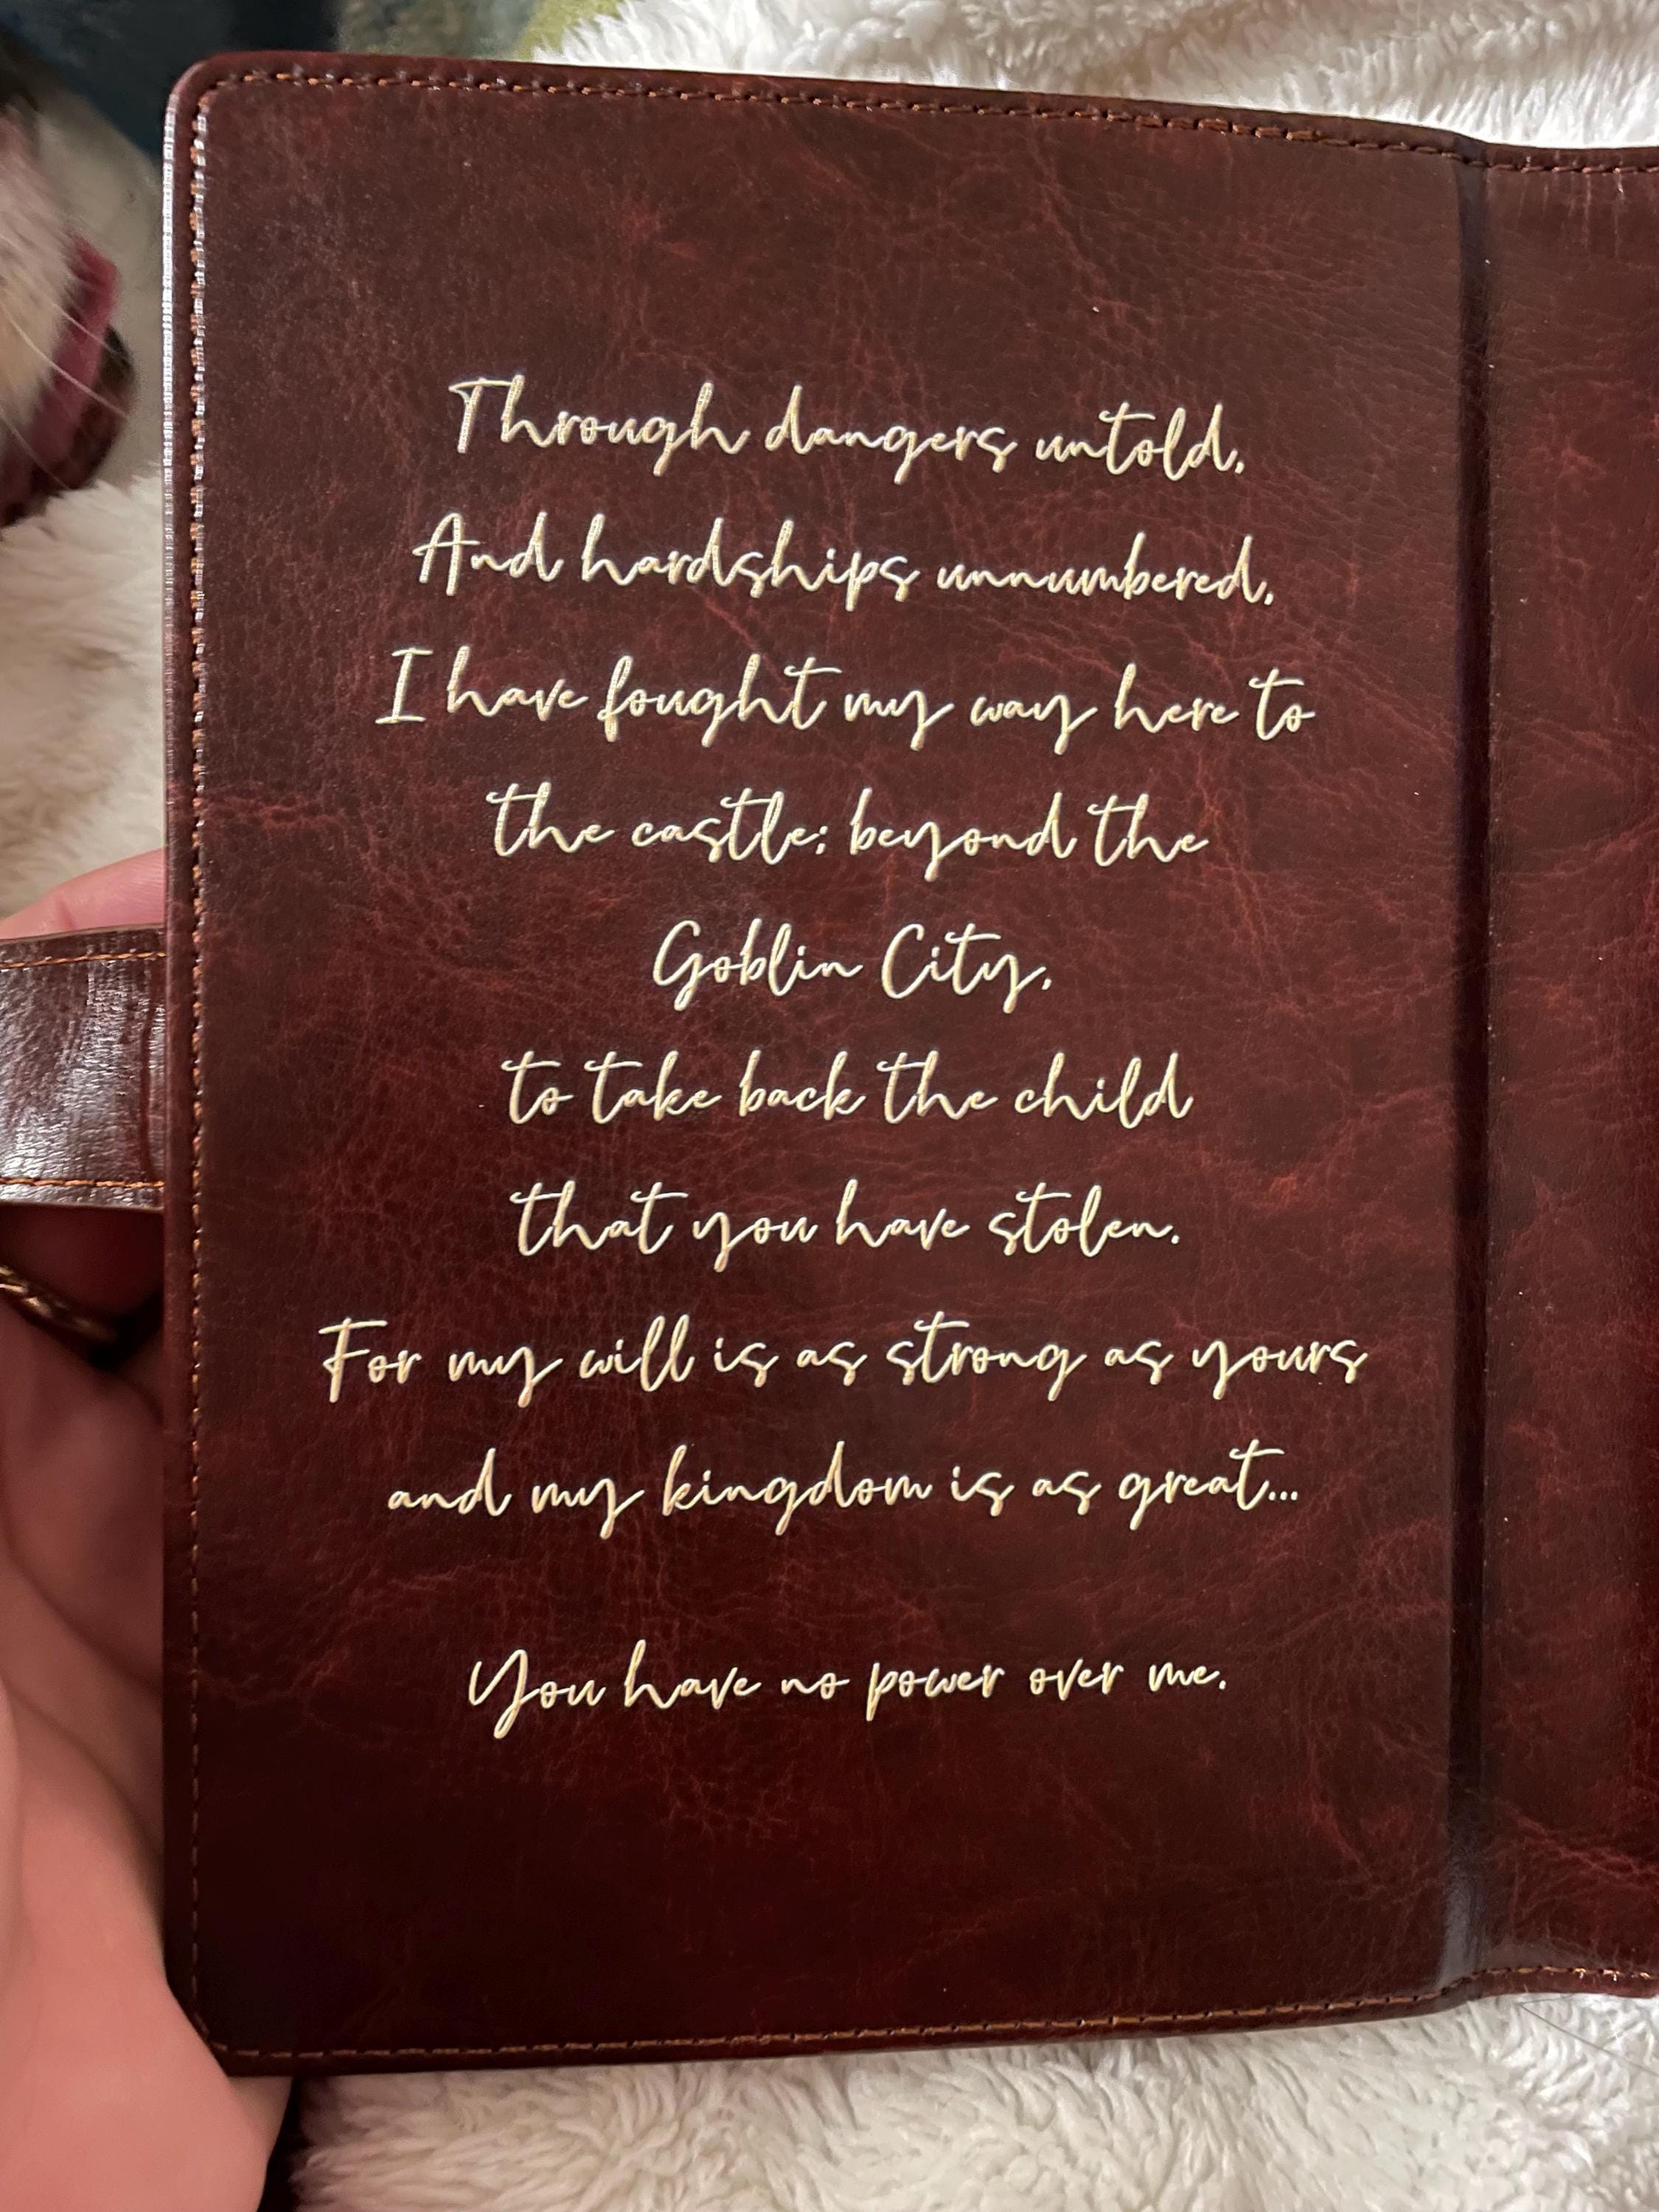 Through dangers untold,
And hardships unnumbered,
I have fought my way here to
the castle; beyond the
Goblin City,
to take back the child
that you have stolen.
For my will is as strong as yours
and my kingdom is as great...
You have no power over me.